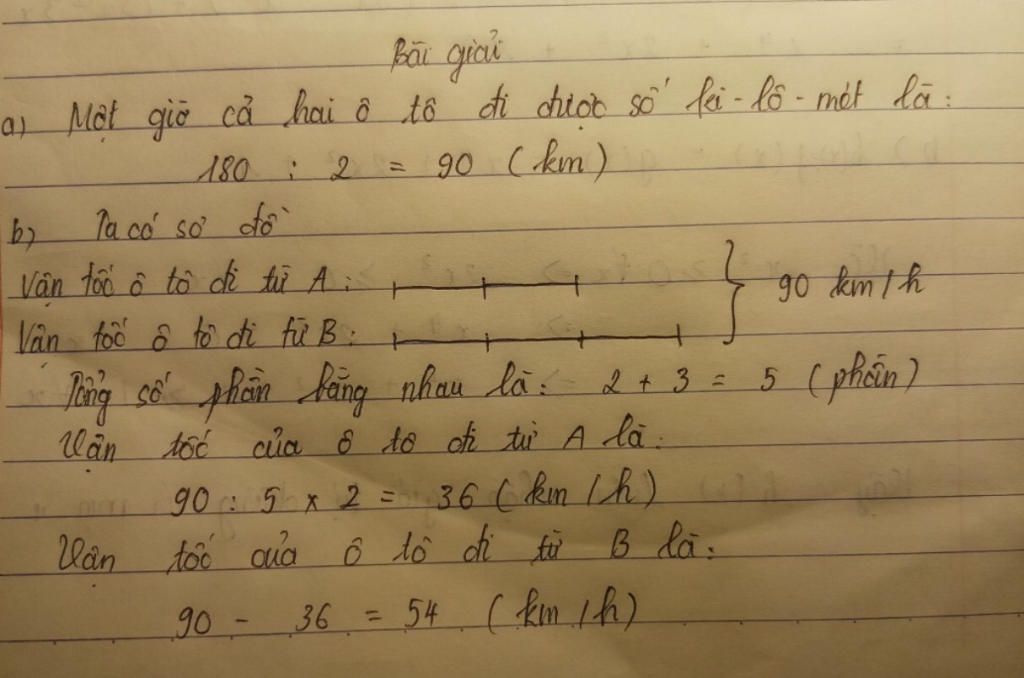 Bài giải
a) Một giờ cả hai ô tô đi được số ki-lô-mét là:
180 : 2 = 90 (km)
b) Ta có sơ đồ
Vận tốc ô tô đi từ A:
90 km/h
Vận tốc ô tô đi từ B:
Tổng số phần bằng nhau là: 2 + 3 = 5 (phần)
Vận tốc của ô tô đi từ A là:
90 : 5 x 2 = 36 (km/h)
Vận tốc của ô tô đi từ B là:
90 - 36 = 54 (km/h)